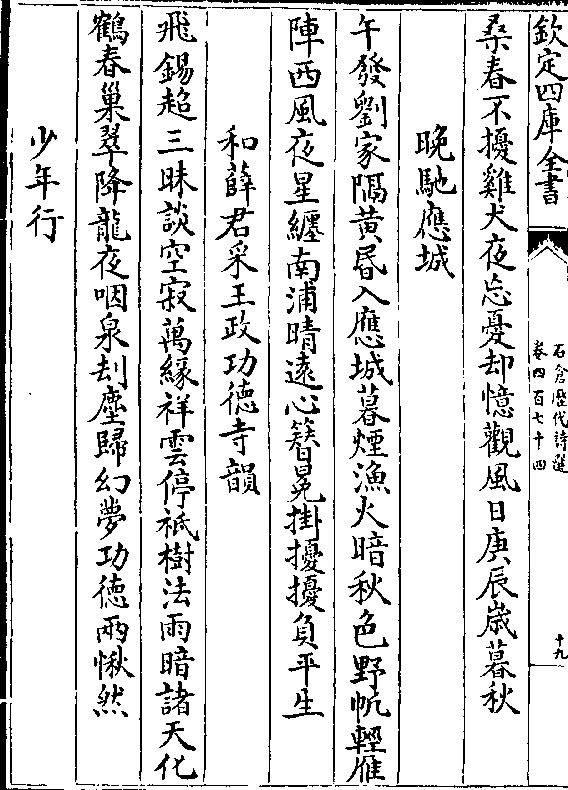 欽定四庫全書
石倉歷代詩選
卷四百七十四
十九
桑春不擾雞犬夜忘憂却憶觀風日庚辰歲暮秋
晚馳應城
午發劉家隔黃昏入應城暮煙漁火暗秋色野帆輕雁
陣西風夜星纏南浦晴遠心簪冕掛擾擾負平生
和薛君采王政功德寺韻
飛錫超三昧談空寂萬緣祥雲停祇樹法雨暗諸天化
鶴春巢翠降龍夜咽泉刦塵歸幻夢功德兩愀然
少年行